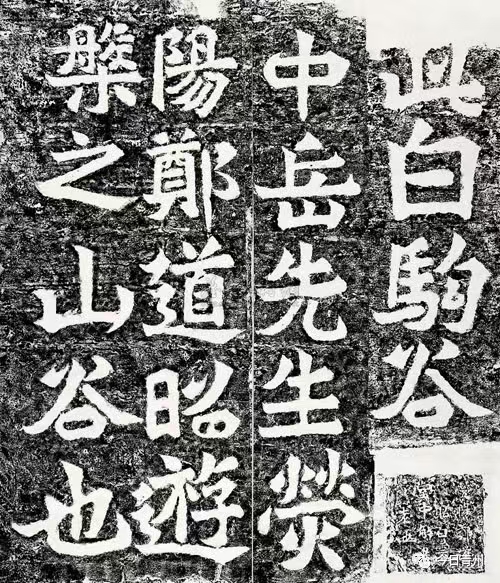 此白駒谷
中岳先生熒
陽鄭道昭遊
槃之山谷也
今日青州